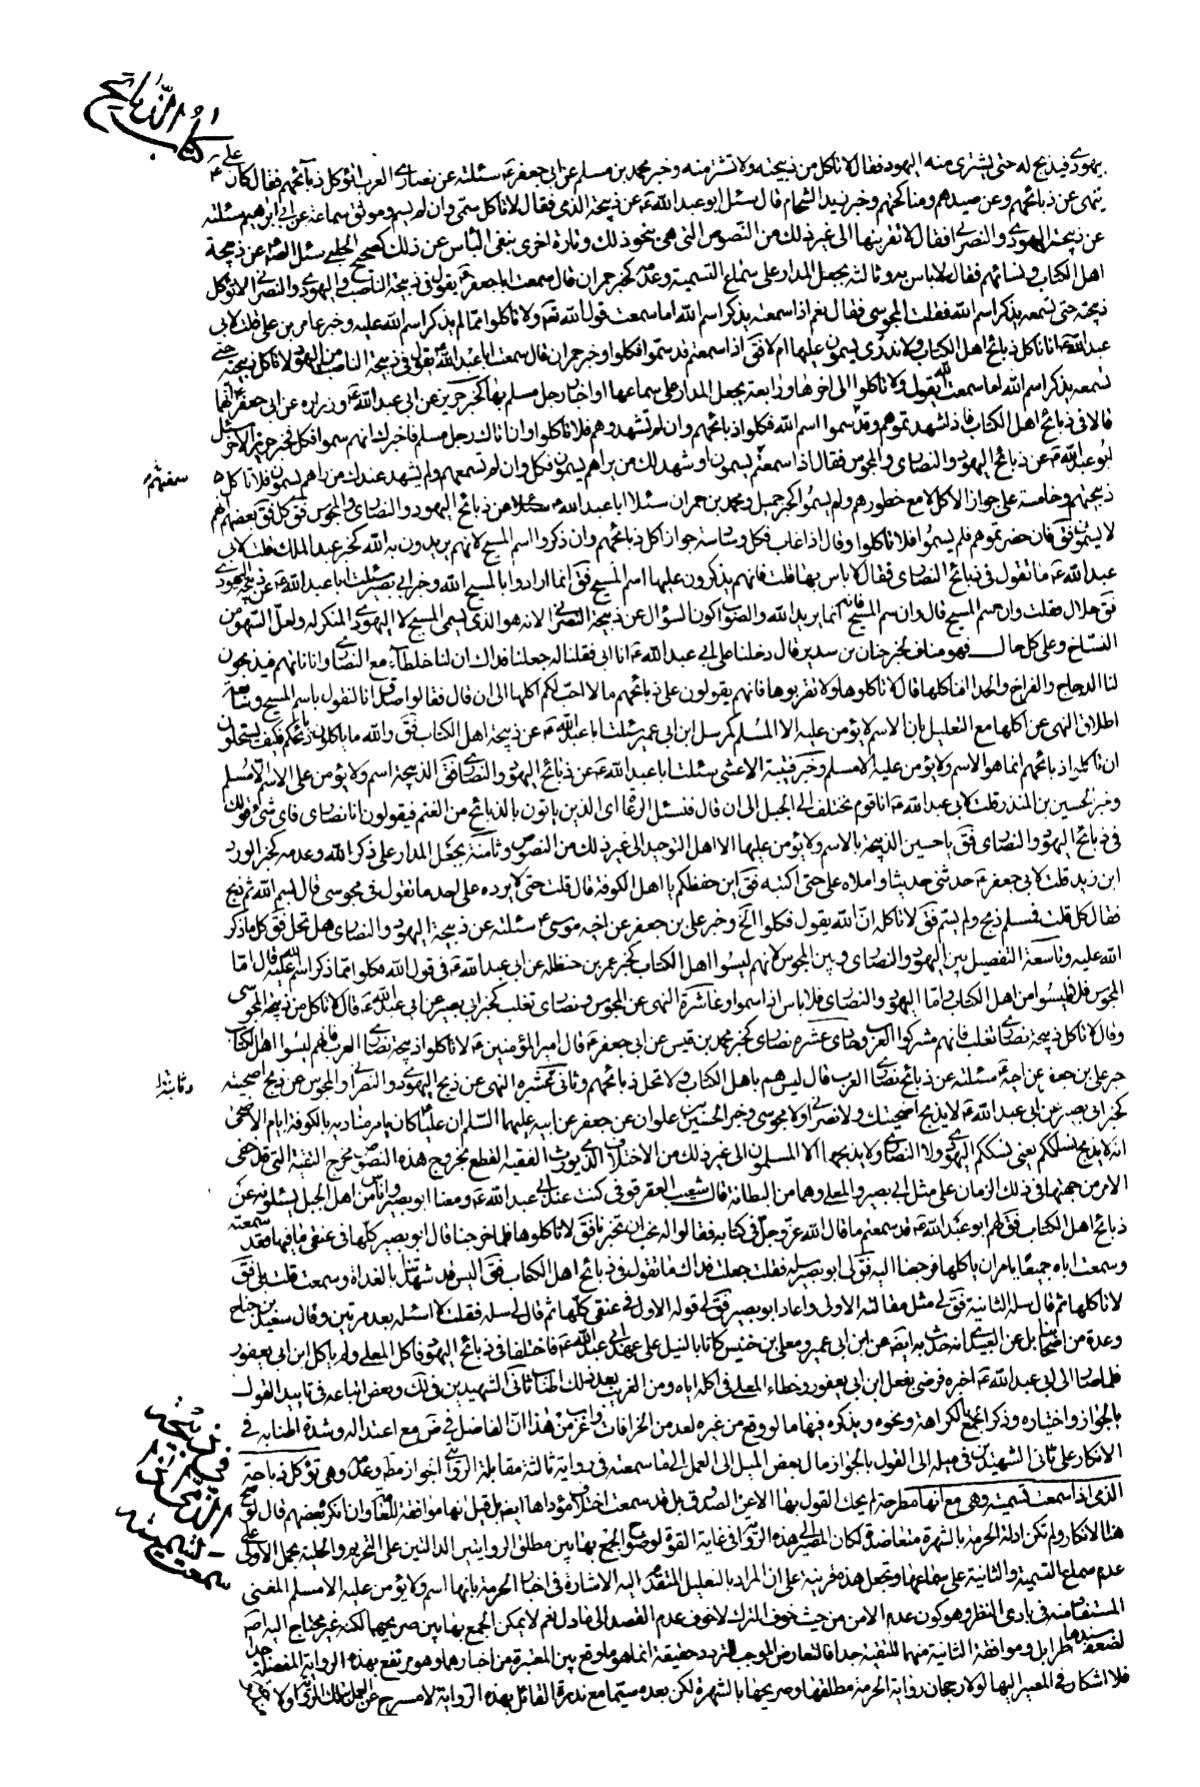 كتاب الذبائح
يهودى فيذبح له حتى يشترى منه اليهود فقال لا تاكل من ذبيحته ولا تشتر منه وخبر محمد بن مسلم عن ابى جعفر ع سئلته عن نصارى العرب اتؤكل ذبائحهم فقال كان على ع
ينهى عن ذبائحهم وعن صيدهم ومناكحتهم وخبر زيد الشحام قال سئل ابو عبد الله ع عن ذبيحة الذمى فقال لا تاكل سمى وان لم يسم وموثق سماعة عن ابى ابرهيم سئلته
عن ذبيحة اليهودى والنصرانى فقال لا تقربنها الى غير ذلك من النصوص التى هى نحو ذلك وتارة اخرى بنفى الباس عن ذلك كصحيح الحلبى سئل الصادق عن ذبيحة
اهل الكتاب ونسائهم فقال لا باس به وثالثة بجعل المدار على سماع التسمية وعدمه كخبر حمران قال سمعت ابا جعفر ع يقول فى ذبيحة الناصب واليهودى والنصرانى لا تؤكل
ذبيحته حتى تسمعه يذكر اسم الله فقلت المجوسى فقال نعم اذا سمعته يذكر اسم الله اما سمعت قول الله تعالى ولا تاكلوا مما لم يذكر اسم الله عليه وخبر عامر بن على قلت لابى
عبد الله ع انا ناكل ذبائح اهل الكتاب ولا ندرى يسمون عليها ام لا فق اذا سمعتم قد سموا فكلوا وخبر حمران قال سمعت ابا عبد الله ع يقول فى ذبيحة الناصب من اليهود لا تاكل ذبيحته حتى
تسمعه يذكر اسم الله اما سمعت الله يقول ولا تاكلوا الى اخرها ورابعة بجعل المدار على سماعها او اخبار رجل مسلم بها كخبر حريز عن ابى عبد الله ع وزراره عن ابى جعفر ع انهما
قالا فى ذبائح اهل الكتاب فاذا شهدتموهم وقد سموا اسم الله فكلوا ذبائحهم وان لم تشهدوهم فلا تاكلوا وان اتاك رجل مسلم فاخبرك انهم سموا فكل وخبر حريز الاخر سئل
ابو عبد الله ع عن ذبائح اليهود والنصارى والمجوس فقال اذا سمعتم يسمون او شهد لك من يراهم يسمون فكل وان لم تسمعهم ولم يشهد عندك من راهم يسمون فلا تاكل
ذبيحتهم وخامسة على جواز الاكل لا مع حضورهم ولم يسموا كخبر جميل ومحمد بن حمران سئلا ابا عبد الله ع عن ذبائح اليهود والنصارى والمجوس فق كل فق بعضهم انهم
لا يسمون فق فان حضرتموهم فلم يسموا فلا تاكلوا وقال اذا غاب فكل وسادسة جواز اكل ذبائحهم وان ذكروا اسم المسيح لانهم يريدون به الله كخبر عبد الملك قلت لابى
عبد الله ع ما تقول فى ذبائح النصارى فقال لا باس بها قلت فانهم يذكرون عليها اسم المسيح فق انما ارادوا بالمسيح الله وخبر ابى بصير سئلت ابا عبد الله ع عن ذبيحة اليهودى
فق حلال فقلت وان سم المسيح قال وان سم المسيح فانه انما يريد الله والصواب كون السؤال عن ذبيحة النصرانى لانه هو الذى يسمى المسيح لا اليهودى المنكر له ولعل السهو من
النساخ وعلى كل حال فهو مناف لخبر حنان بن سدير قال دخلنا على ابى عبد الله ع انا وابى فقلنا له جعلنا فداك ان لنا خلطاء مع النصارى وانا ناتهم فيذبحون
لنا الدجاج والفراخ والجداء افناكلها قال لا تاكلوها ولا تقربوها فانهم يقولون على ذبائحهم ما لا احب لكم اكلها الى ان قال فقالوا صدق انا لنقول باسم المسيح وسابعة
اطلاق النهى عن اكلها مع التعليل بان الاسم لا يؤمن عليه الا المسلم كمرسل ابن ابى عمير سئلت ابا عبد الله ع عن ذبيحة اهل الكتاب فق والله ما ياكلون ذبائحكم فكيف تستحلون
ان تاكلوا ذبائحهم انما هو الاسم ولا يؤمن عليه الا مسلم وخبر قتيبة الاعشى سئلت ابا عبد الله ع عن ذبائح اليهود والنصارى فق الذبيحة اسم ولا يؤمن على الاسم الا مسلم
وخبر الحسين بن المنذر قلت لابى عبد الله ع انا قوم نختلف الى الجبل الى ان قال فنسئل الرعاة اى الذين ياتون بالذبائح من الغنم فيقولون انا نصارى فاى شئ قولك
فى ذبائح اليهود والنصارى فق يا حسين الذبيحة بالاسم ولا يؤمن عليها الا اهل التوحيد الى غير ذلك من النصوص وثامنة بجعل المدار على ذكر الله وعدمه كخبر الورد
ابن زيد قلت لابى جعفر ع حدثنى حديثا واملاه على حتى اكتبه فق اين حفظكم يا اهل الكوفة قال قلت حتى لا يرده على احد ما تقول فى مجوسى قال بسم الله ثم ذبح
فقال كل قلت فمسلم ذبح ولم يسم فق لا تاكله ان الله يقول فكلوا الخ وخبر على بن جعفر عن اخيه موسى ع سئلته عن ذبيحة اليهود والنصارى هل تحل فق كل ما ذكر
الله عليه وتاسعة التفصيل بين اليهود والنصارى وبين المجوس لانهم ليسوا اهل الكتاب كخبر عمر بن حنظله عن ابى عبد الله ع فى قول الله فكلوا مما ذكر اسم الله عليه قال اما
المجوس فلا فليسوا من اهل الكتاب واما اليهود والنصارى فلا باس اذا سموا وعاشرة النهى عن المجوس ونصارى تغلب كخبر ابى بصير عن ابى عبد الله ع قال لا تاكل من ذبيحة المجوسى
وقال لا تاكل ذبيحة نصارى تغلب فانهم مشركوا العرب وحادى عشره نصارى كخبر محمد بن قيس عن ابى جعفر ع قال امير المؤمنين ع لا تاكلوا ذبيحة نصارى العرب فانهم ليسوا اهل الكتاب
خبر على بن جعفر عن اخيه ع سئلته عن ذبائح نصارى العرب قال ليس هم باهل الكتاب ولا تحل ذبائحهم وثانى عشره النهى عن ذبح اليهودى والنصرانى والمجوس عن ذبح اضحيته
كخبر ابى بصير عن ابى عبد الله ع لا يذبح اضحيتك ولا نصرانى ولا مجوسى وخبر الحسين بن علوان عن جعفر عن ابيه عليهما السلم ان عليا كان يامر مناديه بالكوفة ايام الاضحى
انه لا يذبح نسائككم يعنى نسككم اليهودى ولا النصارى ولا يذبحها الا المسلمون الى غير ذلك من الاختلاف الذى يورث الفقيه القطع بخروج هذه النصوص مخرج التقية التى قد خفى
الامر من جهتها فى ذلك الزمان على مثل ابى بصير والمعلى وهما من البطانة قال شعيب العقرقوفى كنت عند ابى عبد الله ع ومعنا ابو بصير واناس من اهل الجبل يسئلونه عن
ذبائح اهل الكتاب فق لهم ابو عبد الله ع قد سمعتم ما قال الله عز وجل فى كتابه فقالوا له نحب ان تخبرنا فق لا تاكلوها فلما خرجنا قال ابو بصير كلها فى عنقى ما فيها فقد سمعته
وسمعت اباه جميعا يامران باكلها فرجعنا اليه فق لى ابو بصير سله فقلت جعلت فداك ما تقول فى ذبائح اهل الكتاب فق اليس قد شهدتنا بالغداة وسمعت قلت بلى فق
لا تاكلها ثم قال سله الثانية فق لى مثل مقالته الاولى واعاد ابو بصير فق لى قوله الاول فى عنقى كلها ثم قال لى سله فقلت لا اسئله بعد مرتين وقال سعيد بن جناح
وعدة من اصحابنا بل عن العبيدى انه حدث به ايضا عن ابن ابى عمير ومعلى بن خنيس كانا بالنيل على عهد ابى عبد الله ع فاختلفا فى ذبائح اليهود فاكل المعلى ولم ياكل ابن ابى يعفور
فلما صارا الى ابى عبد الله ع اخبره فرضى بفعل ابن ابى يعفور وخطاء المعلى فى اكله اياه ومن الغريب بعد ذلك اطناب ثانى الشهيدين فى ذلك وبعض اتباعه فى تاييد القول
بالجواز واختياره وذكر الجمع بالكراهة ونحوه ويذكره فيها ما لو وقع من غيره لعد من الخرافات واغرب من هذا ان الفاضل فى ض مع اعتداله وشدة اطنابه فى
الانكار على ثانى الشهيدين فى ميله الى القول بالجواز مال بعض الميل الى العمل الى ما سمعته فى رواية ثالثة مقابلة الروايتى الجواز مطلقا وعدمه وهى تؤكل ذباحة
الذمى اذا سمعت تسميته وهى مع انها مطرحة لم يحك القول بها الا عن الصدوق بل قد سمعت اختلاف مؤداها ايضا بل قبل بها موافقة للتقية وان انكر بعضهم قال لو صح
هذا الانكار ولم تكن ادلة الحرمة بالشهرة متعاضدة لكان المصير الى هذه الرواية فى غاية القوة لوضوح الجمع بها بين مطلق الروايتين الدالتين على التحريم والحلية بحمل الاولى على
عدم سماع التسمية والثانية على سماعها وتجعل هذه قرينة على ان المراد بالتعليل المتقدم اليه الاشارة فى اخبار الحرمة بانها اسم ولا يؤمن عليه الا مسلم المعنى
المستفاد منه فى بادى النظر وهو كون عدم الامن من حيث خوف الترك لا خوف عدم القصد الى مادل نعم لا يمكن الجمع بها بين صريحهما لكنه غير محتاج اليه
لضعف سندهما طرا بل وموافقة الثانية منهما للتقية جدا فالتعارض الموجب للتردد حقيقة انما هو ما وقع بين المعتبرة من اخبارهما وهو مرتفع بهذه الرواية المفصلة جدا
فلا اشكال فى المصير اليها لولا رجحان رواية الحرمة مطلقها وصريحها بالشهرة لكن بعده سيما مع ندرة القائل بهذه الرواية لا مسرح عن العمل بتلك الرواية اولا